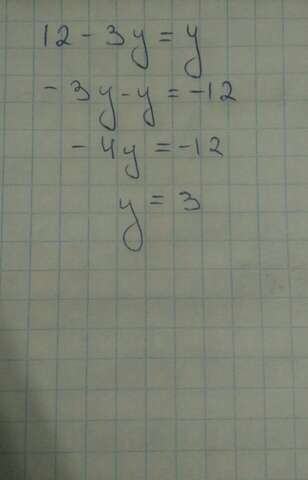 12 - 3y = y
- 3y - y = -12
- 4y = -12
y = 3